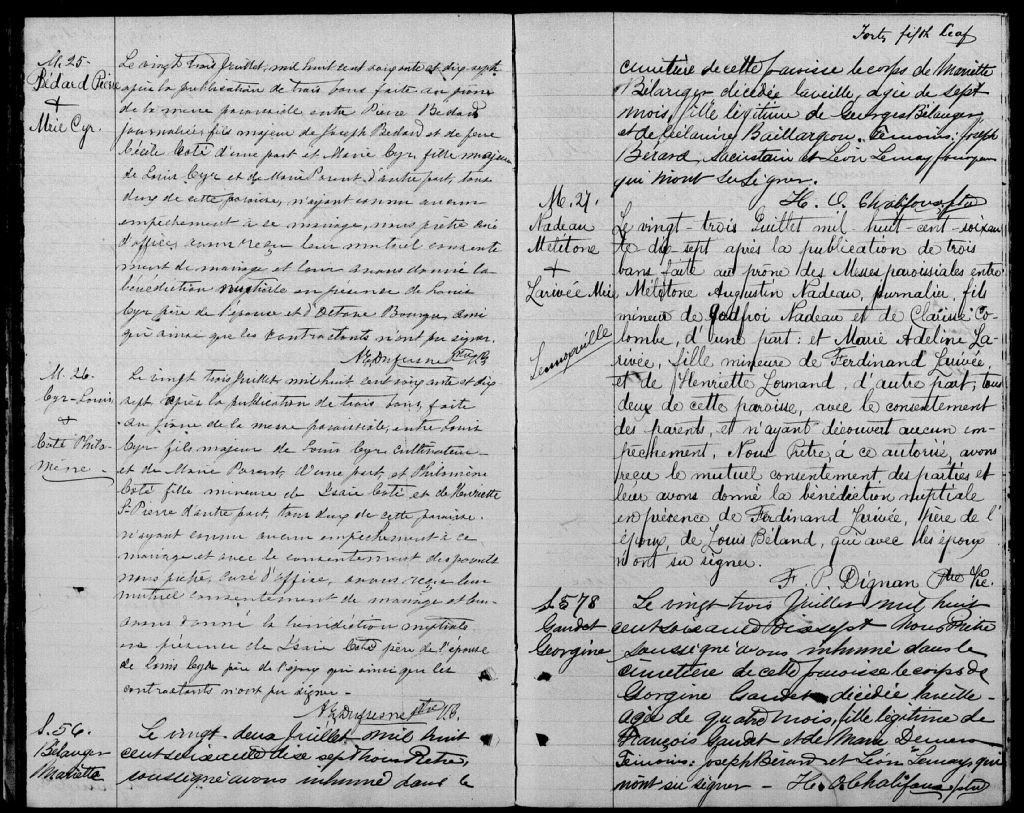 M. 25-
Bédard Pierre
+
Mrie Cyr.
Le vingt trois Juillet, mil huit cent soixante et dix sept
après la publication de trois bans faite au prône
de la messe paroissiale entre Pierre Bedard
journalier, fils majeur de Joseph Bedard et de feue
Cécile Coté d'une part et Marie Cyr fille majeure
de Louis Cyr et de Marie Parent, d'autre part, tous
deux de cette paroisse, n'ayant connu aucun
empêchement à ce mariage, nous prêtre curé
d'office, avons reçu leur mutuel consente
ment de mariage et leur avons donné la
bénédiction nuptiale en présence de Louis
Cyr père de l'épouse et d'Octave Bourque, ainsi
qui ainsi que les contractants n'ont pu signer.
A. E. Dufresne ptre
M. 26.
Cyr-Louis
+
Coté Philo-
mène -
Le vingt trois Juillet mil huit cent soixante et dix
sept après la publication de trois bans, faite
au prône de la messe paroissiale, entre Louis
Cyr fils majeur de Louis Cyr Cultivateur
et de Marie Parent, d'une part, et Philomène
Coté fille mineure de Isaïe Coté et de Henriette
St-Pierre d'autre part, tous deux de cette paroisse.
n'ayant connu aucun empêchement à ce
mariage et avec le consentement des parents
nous prêtre, curé d'office, avons reçu leur
mutuel consentement de mariage et leur
avons donné la bénédiction nuptiale
en présence de Isaïe Coté père de l'épouse
de Louis Cyr père de l'époux qui ainsi que les
contractants n'ont pu signer -
A. E. Dufresne ptre
S. 56.
Bélanger
Marietta
Le vingt-deux Juillet mil huit
cent soixante dix sept Nous Pretre,
soussigné avons inhumé dans le
Forty fifth Leaf
cimetière de cette paroisse le corps de Mariette
Bélanger décédée la veille, agée de sept
mois, fille légitime de Georges Bélanger
et de Célanire Baillargeon. Témoins: Joseph
Bérard, Sacristain et Léon Lemay
qui n'ont su signer.
H. O. Chalifoux, ptre
M. 27.
Nadeau
Mélétone
+
Larivée Mrie
Lennoxville
Le vingt-trois Juillet mil-huit-cent-soixan
te-dix-sept après la publication de trois
bans faite au prône des Messes paroissiales entre
Mélétone Augustin Nadeau, journalier, fils
mineur de Godfroi Nadeau et de Clarisse Co-
lombe, d'une part; et Marie Adeline La-
rivée, fille mineure de Ferdinand Larivée
et de Henriette Lormand, d'autre part, tous
deux de cette paroisse, avec le consentement
des parents, et n'ayant découvert aucun em-
pêchement, Nous Prêtre à ce autorisé, avons
reçu le mutuel consentement des parties et
leur avons donné la bénédiction nuptiale
en présence de Ferdinand Larivée, père de l'
époux, de Louis Béland, qui avec les époux
n'ont su signer.
F. P. Dignan Ptre Vic.
S. 578
Gaudet
Georgine
Le vingt trois Juillet mil huit
cent soixante Dix sept Nous Pretre
Soussigné avons inhumé dans le
cimetière de cette paroisse le corps de
Georgine Gaudet décédée la veille
agée de quatre mois, fille légitime de
François Gaudet et de Marie Demers
Témoins: Joseph Bérard et Léon Lemay, qui
n'ont su signer - H. O. Chalifoux, ptre